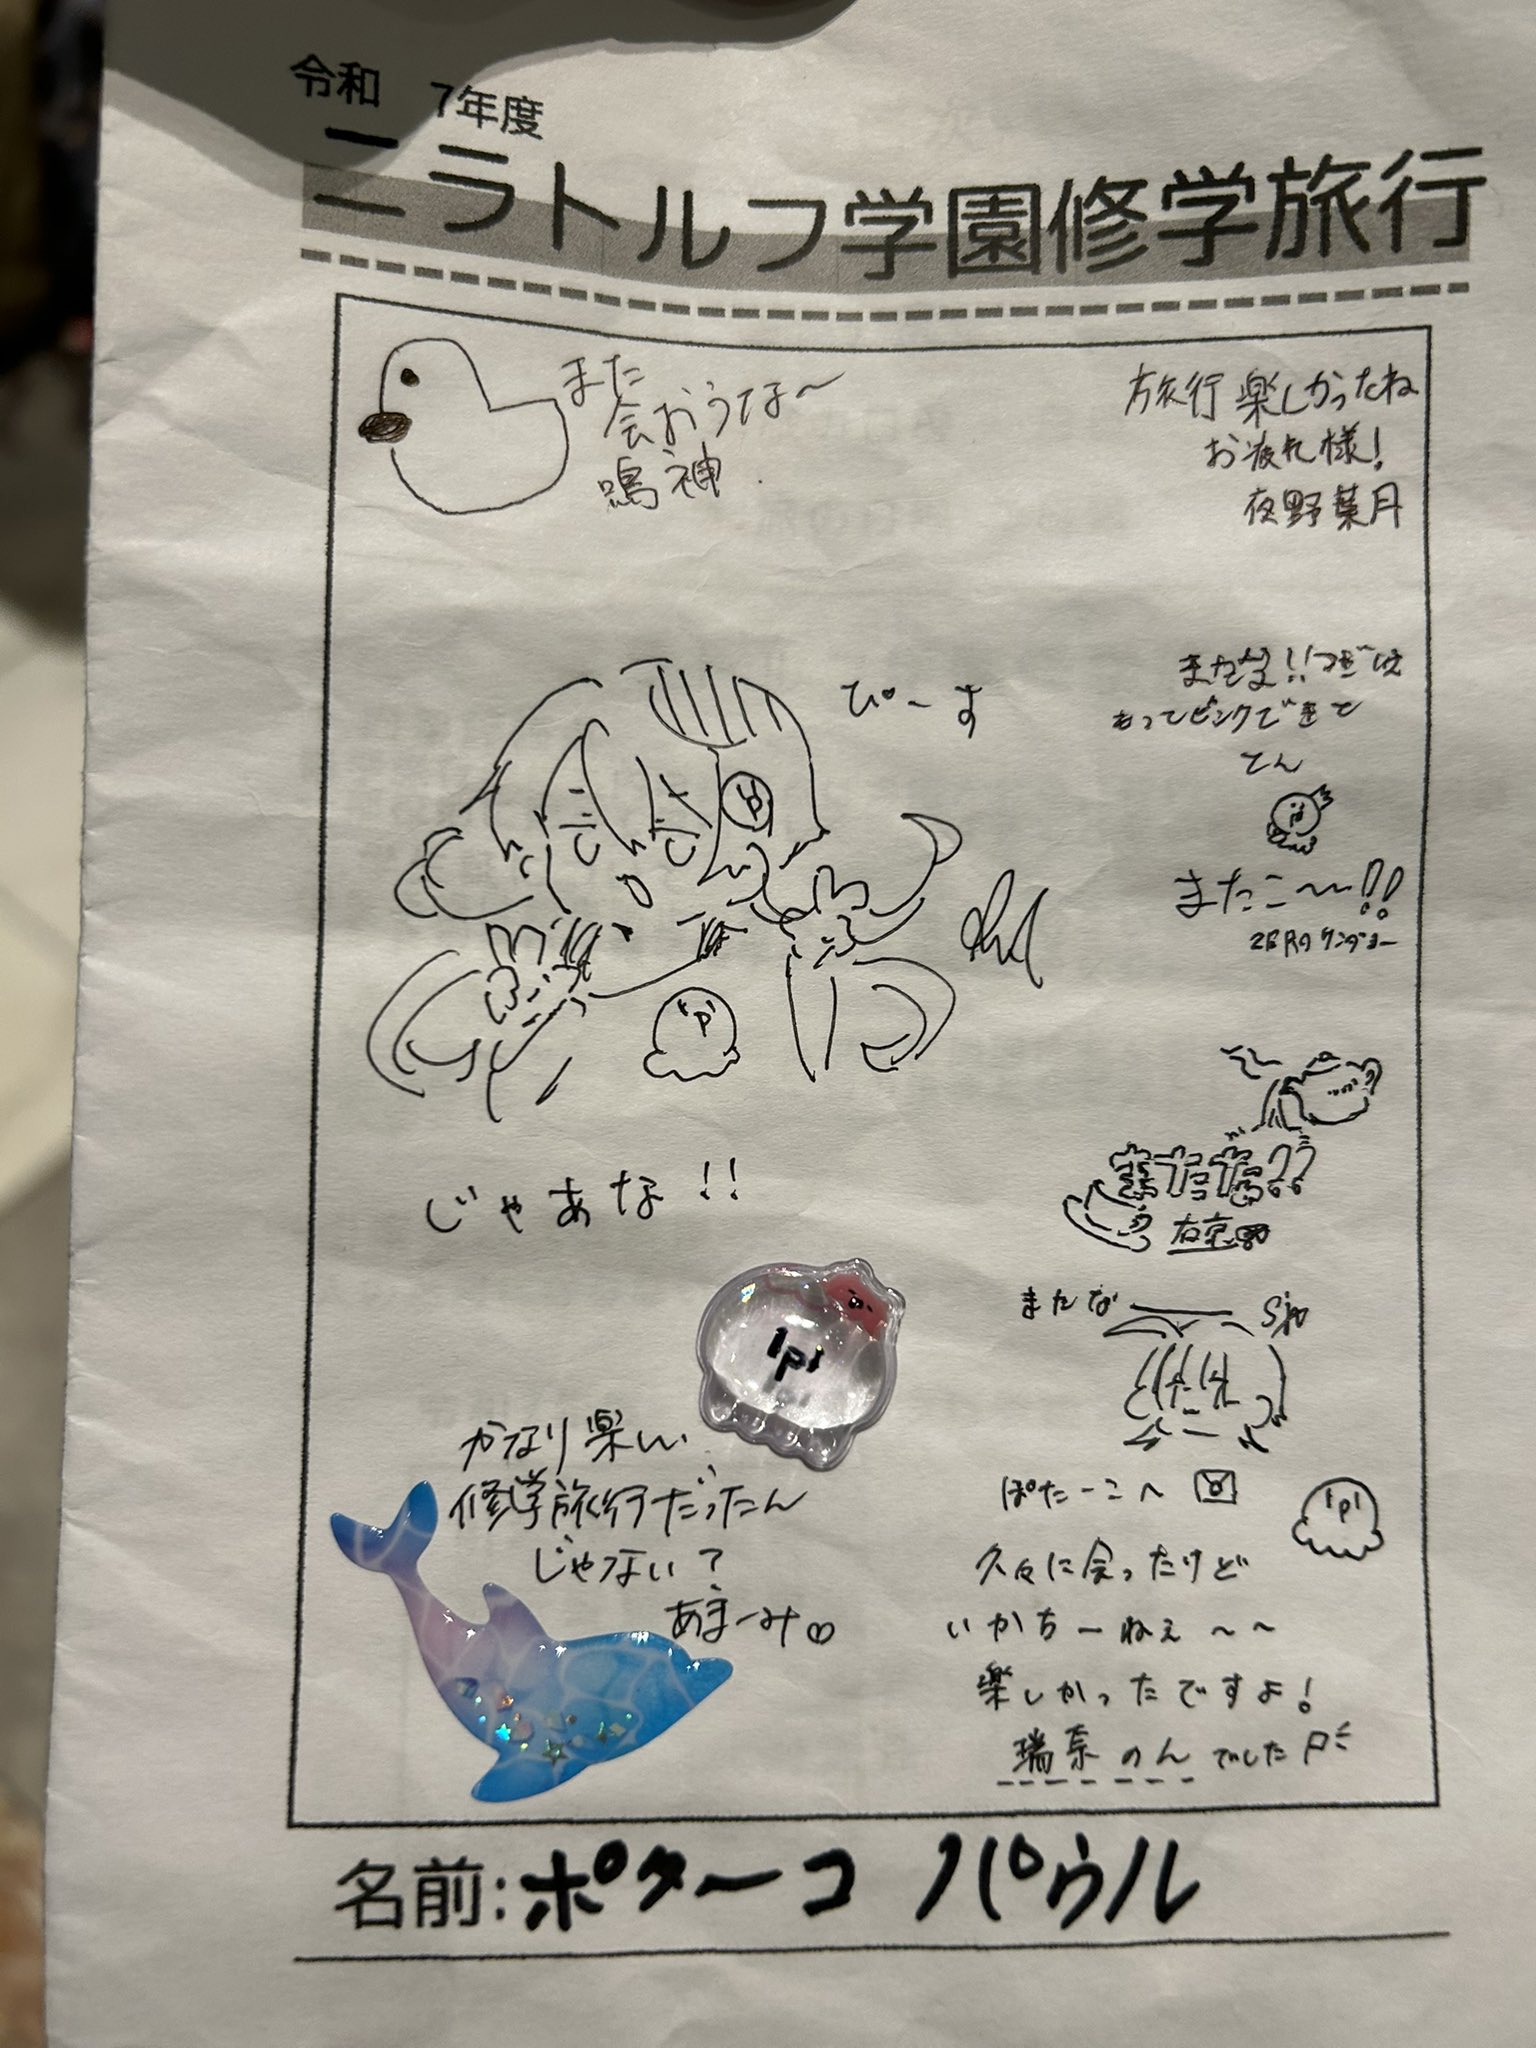 令和 7年度
ニラトルフ学園修学旅行
また
会おうな〜
鳴神
旅行 楽しかったね
お疲れ様！
夜野葉月
ぴーす
またな!!つぎは
もってピンクできて
てん
またこ〜〜!!
じゃあな!!
まただな??
またな
かなり楽しい
修学旅行だったん
じゃない？
あまーみ♡
ぽたーこへ
久々に会ったけど
いかちーねぇ〜〜
楽しかったですよ！
瑞奈のんでした
名前:ポターコ パウル